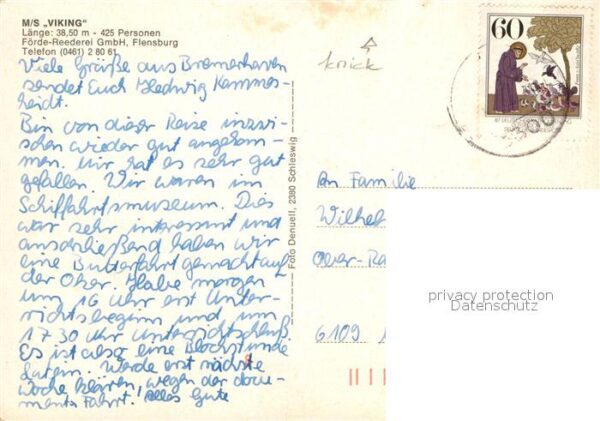 M/S „VIKING"
Länge: 38,50 m - 425 Personen
Förde-Reederei GmbH, Flensburg
Telefon (0461) 2 80 61
Viele Grüße aus Bremerhaven
sendet Euch Hedwig Kammes-
heidt.
Bin von dieser Reise inzwi-
schen wieder gut angekom-
men. Mir hat es sehr gut
gefallen. Wir waren im
Schiffahrtsmuseum. Dies
war sehr interessant und
anschließend haben wir
eine Butterfahrt gemacht auf
der Oker. Habe morgen
um 16 Uhr erst Unter-
richtsbeginn und um
17 30 Uhr Unterrichtschluß.
Es ist also eine Blockstunde
Latein. Werde erst nächste
Woche klären, wegen der
Fahrt. Alles Gute
Foto Denuell, 2380 Schleswig
knick
60
An Familie
Wilhel
Ober-Ra
6109
privacy protection
Datenschutz